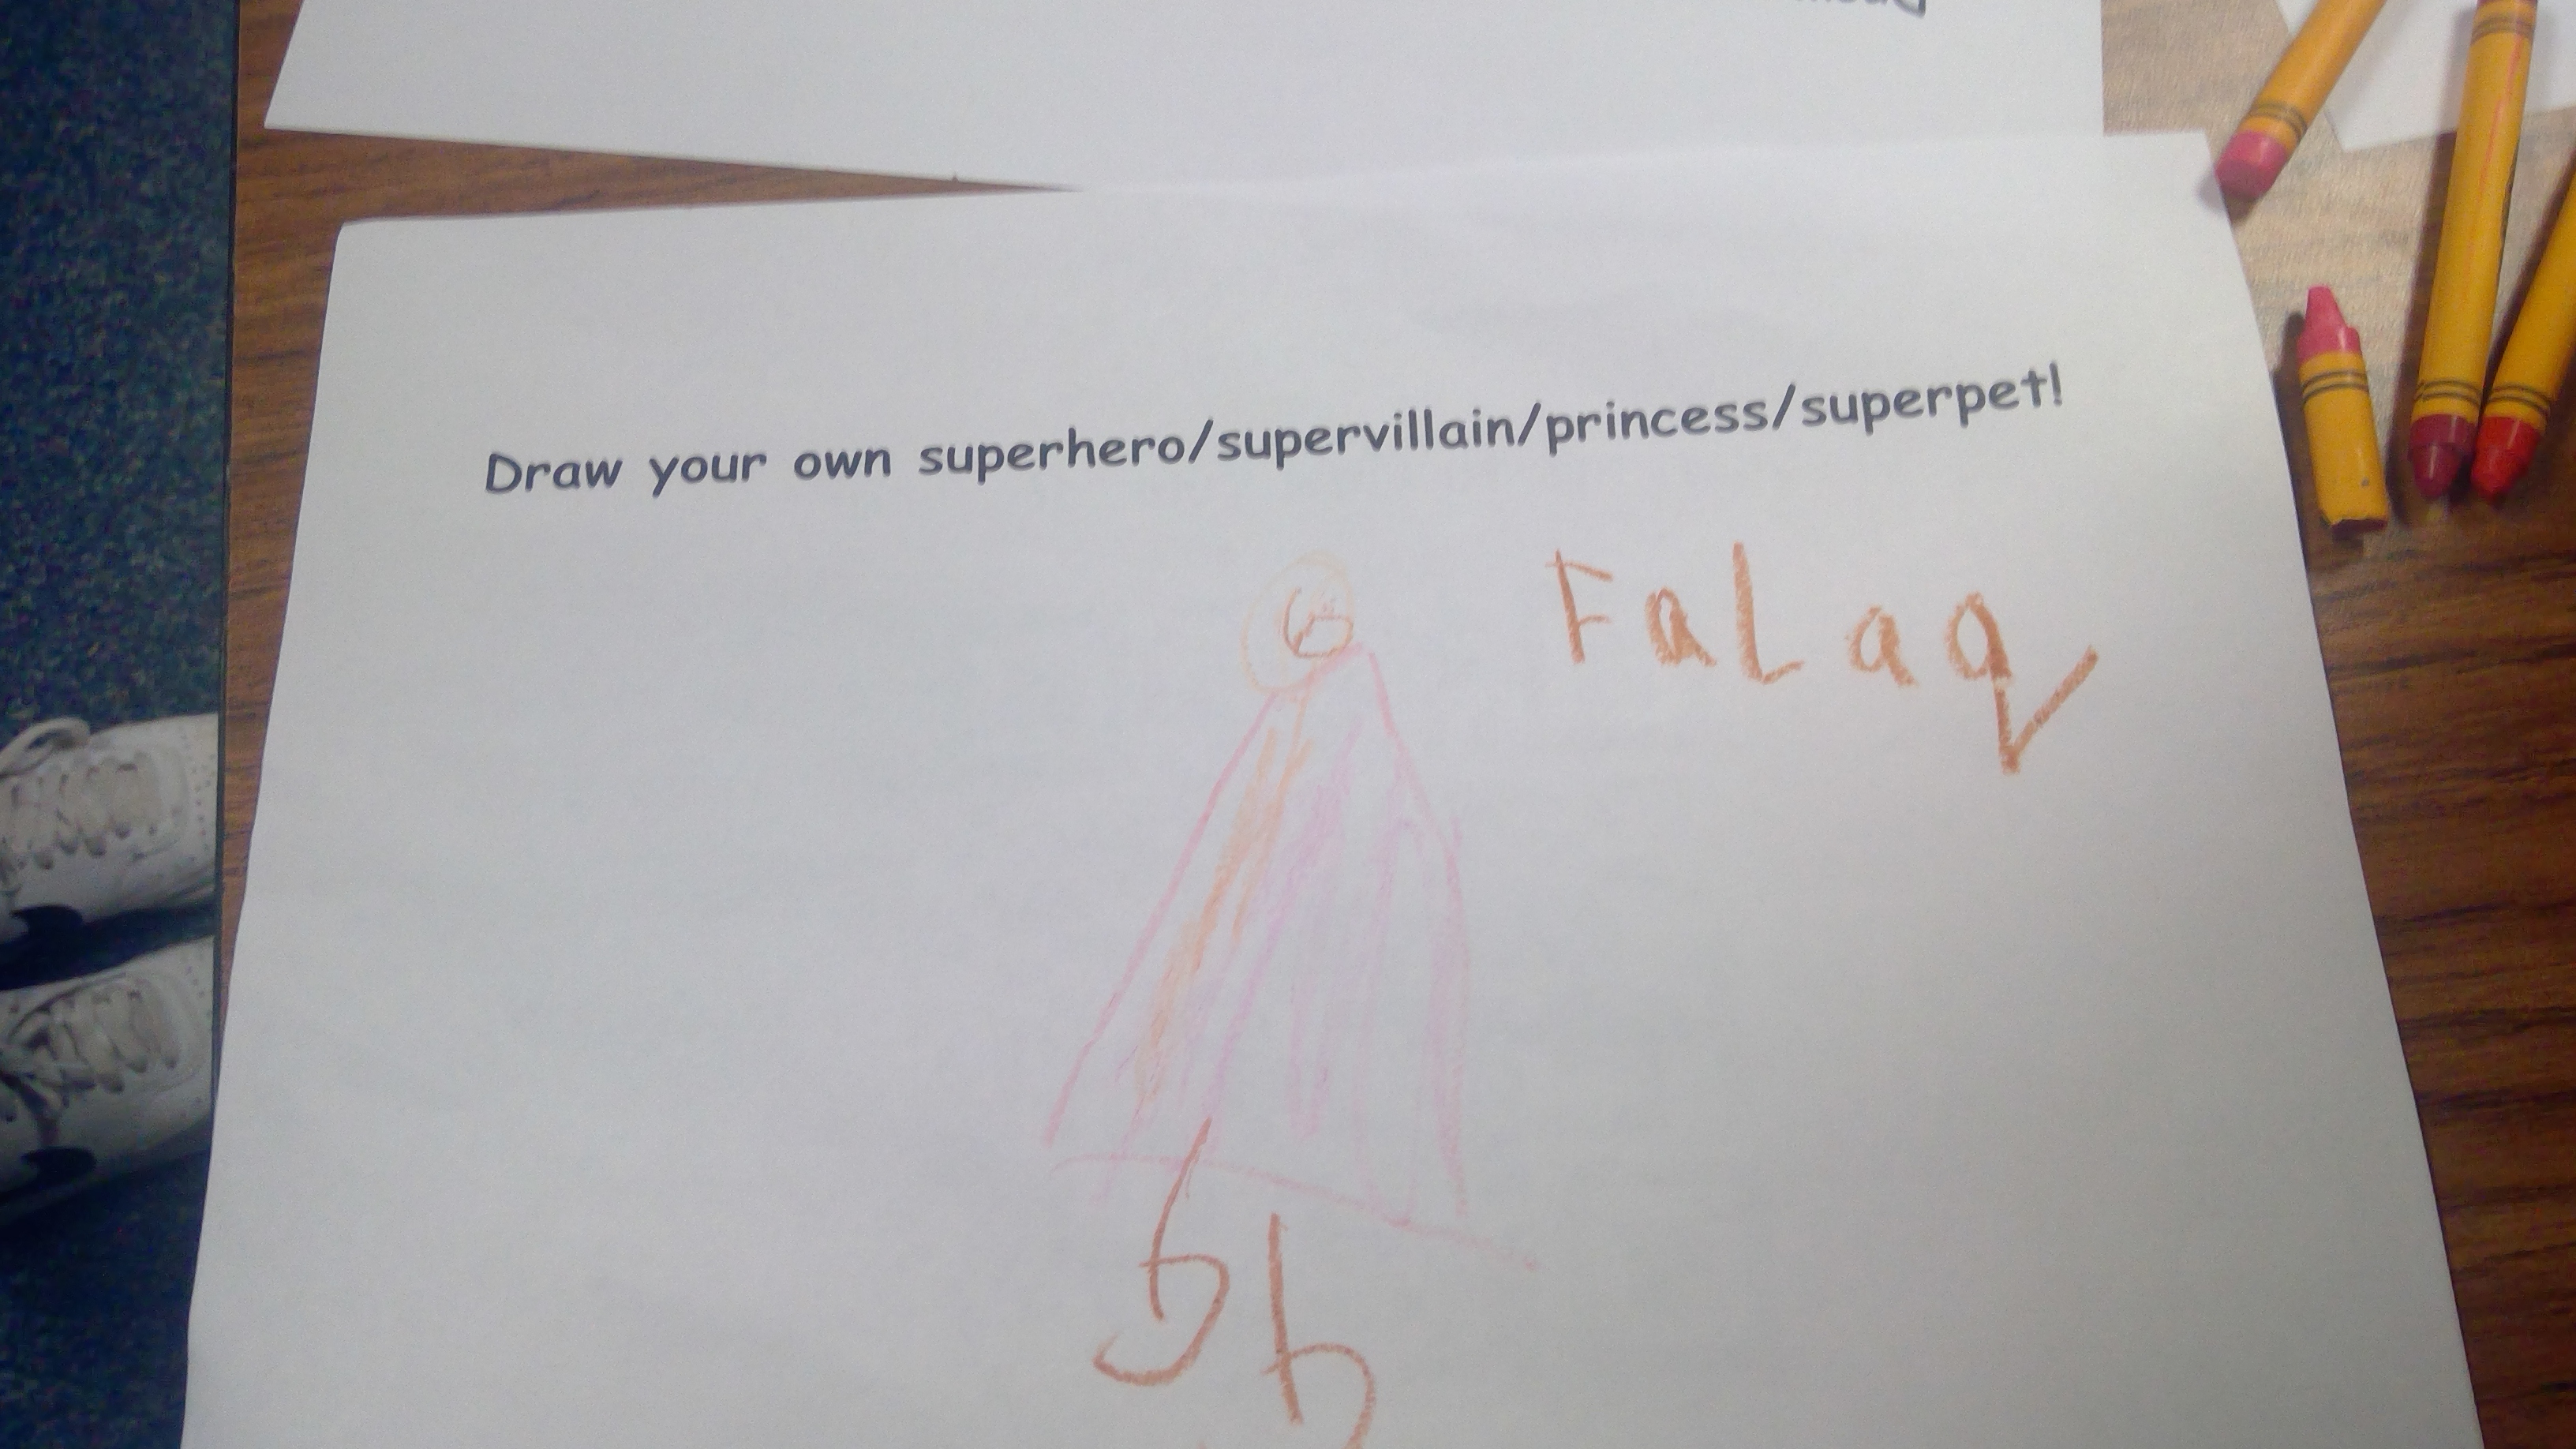 Draw your own superhero/supervillain/princess/superpet!
FaLaq